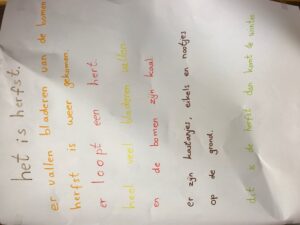 het is herfst.
er vallen bladeren van de bomen
herfst is weer gekomen.
er loopt een hert.
heel veel bladeren vallen
en de bomen zijn kaal.
er zijn kastanjes, eikels en nootjes
op de grond.
dit is de herfst dan komt de winter